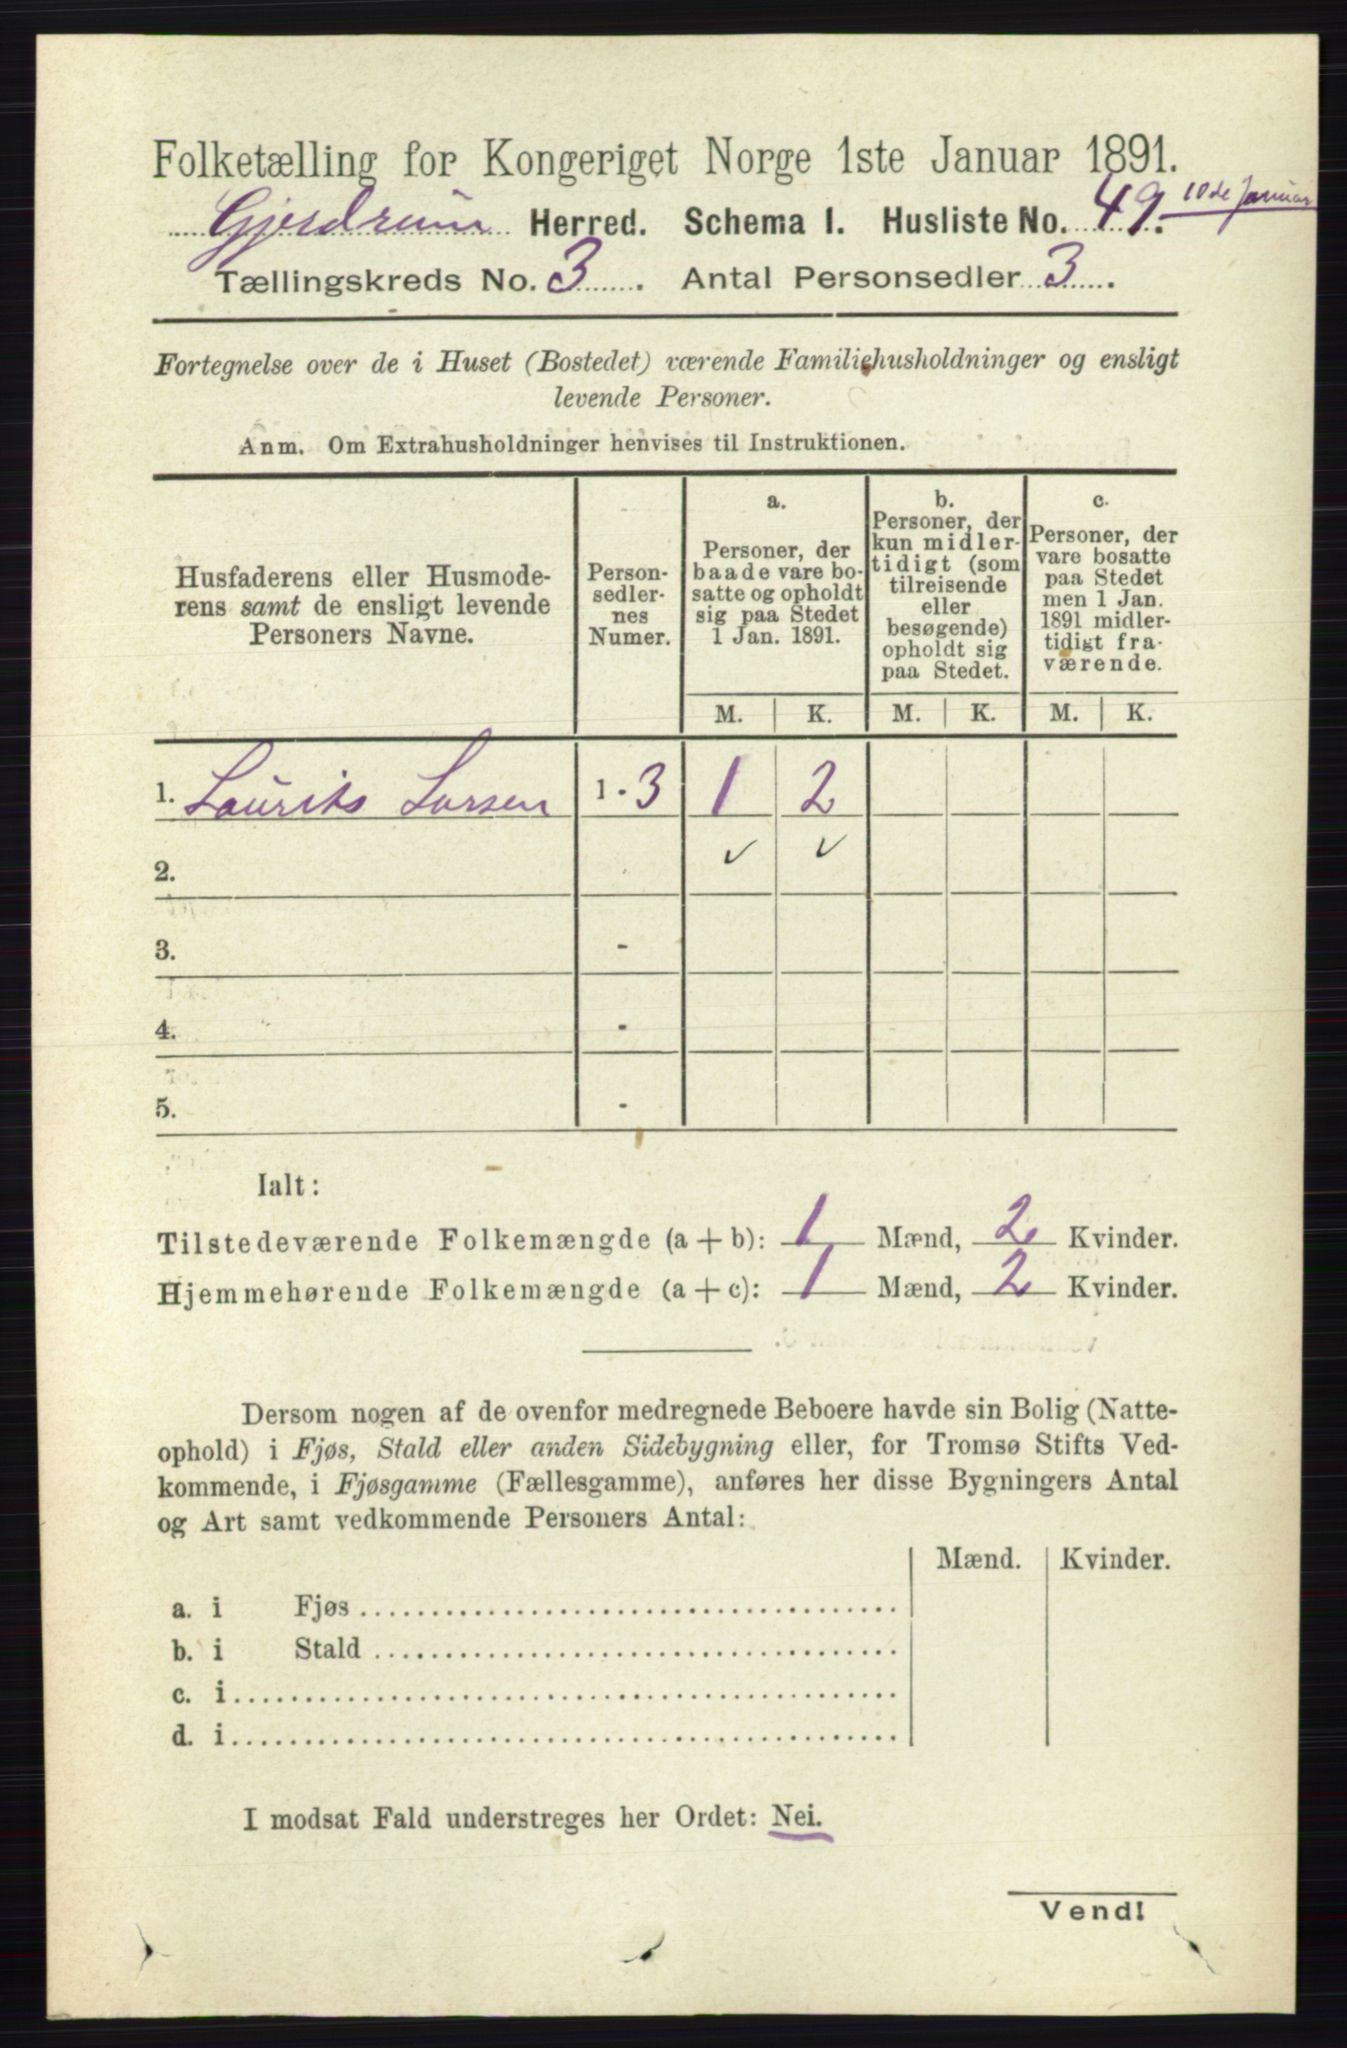 Folketælling for Kongeriget Norge 1ste Januar 1891.
Gjerdrum Herred. Schema I. Husliste No. 49. 10de Januar
Tællingskreds No. 3. Antal Personsedler 3.
Fortegnelse over de i Huset (Bostedet) værende Familiehusholdninger og ensligt
levende Personer.
Anm. Om Extrahusholdninger henvises til Instruktionen.
Husfaderens eller Husmode-
rens samt de ensligt levende
Personers Navne.
Person-
sedler-
nes
Numer.
a.
Personer, der
baade vare bo-
satte og opholdt
sig paa Stedet
1 Jan. 1891.
b.
Personer, der
kun midler-
tidigt (som
tilreisende
eller
besøgende)
opholdt sig
paa Stedet.
c.
Personer, der
vare bosatte
paa Stedet
men 1 Jan.
1891 midler-
tidigt fra-
værende.
M. K. M. K. M. K.
1. Laurits Larsen 1 - 3 1 2
2. ✓ ✓
3. -
4. -
5. -
Ialt:
Tilstedeværende Folkemængde (a + b): 1 Mænd, 2 Kvinder.
Hjemmehørende Folkemængde (a + c): 1 Mænd, 2 Kvinder.
Dersom nogen af de ovenfor medregnede Beboere havde sin Bolig (Natte-
ophold) i Fjøs, Stald eller anden Sidebygning eller, for Tromsø Stifts Ved-
kommende, i Fjøsgamme (Fællesgamme), anføres her disse Bygningers Antal
og Art samt vedkommende Personers Antal:
Mænd. Kvinder.
a. i Fjøs
b. i Stald
c. i
d. i
I modsat Fald understreges her Ordet: Nei.
Vend!